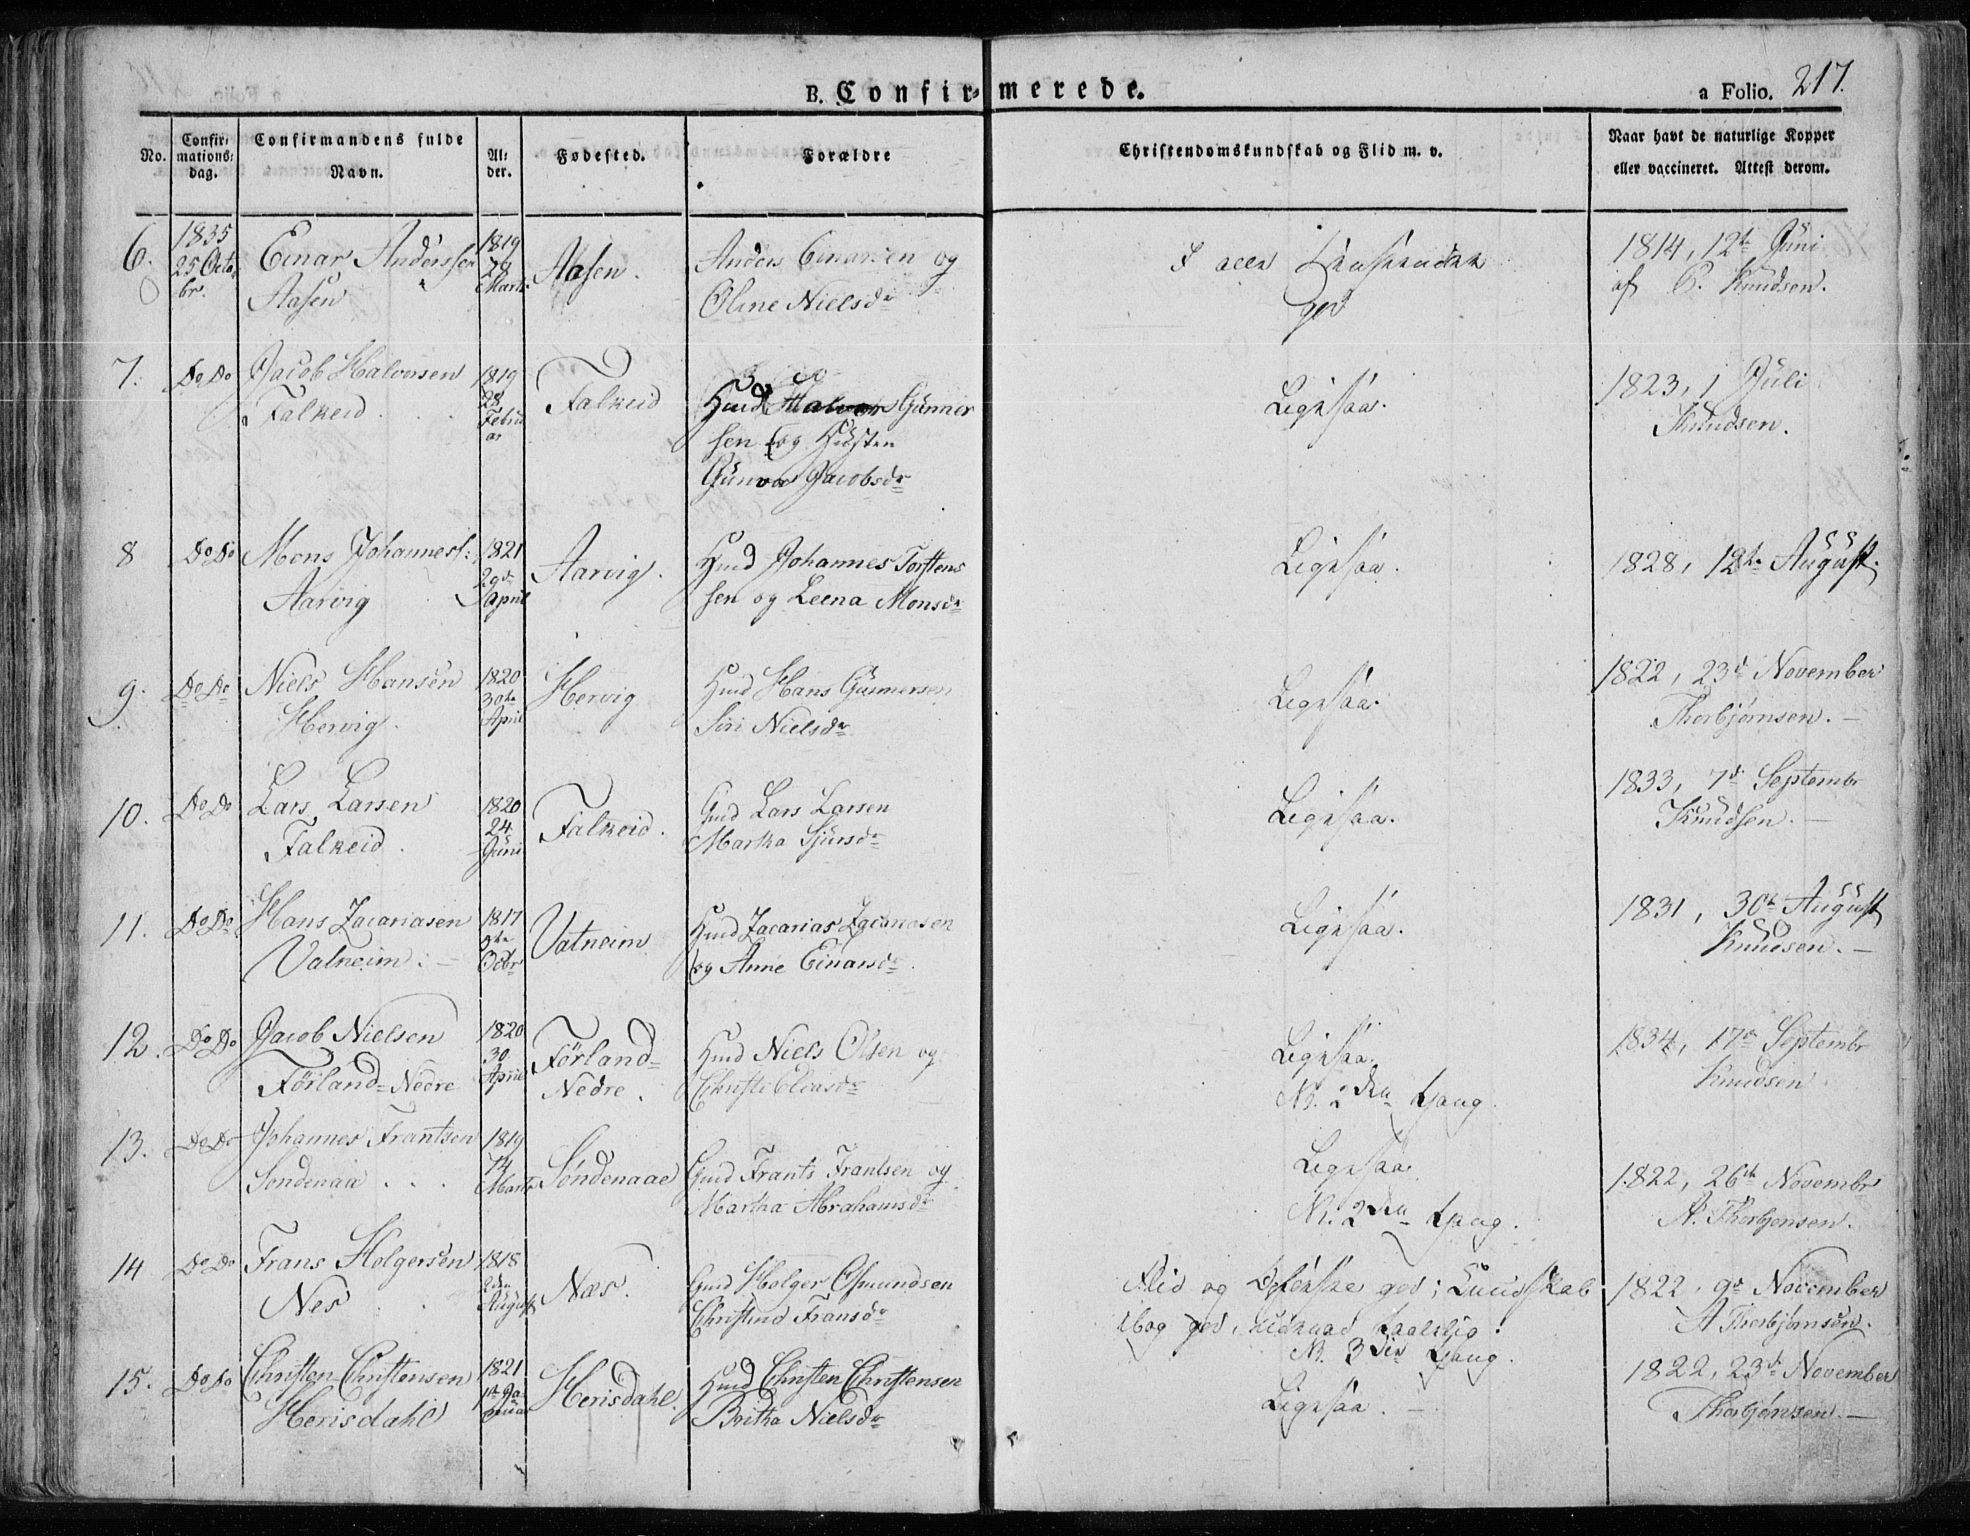 B. Confirmerede.
a Folio. 217.
No.
Confirmations:
dag.
Confirmandens fulde
Navn.
Al:
der.
Fødested.
Forældre
Christendomskundskab og Flid m. v.
Naar havt de naturlige Kopper
eller vaccineret. Attest derom.
6.
1835
25 Octo
br.
Einar Anderssen
Aasen
1819
28
Marts
Aasen.
Anders Einarsen og
Oline Nielsdr
I alle Henseender
god
1814, 12te Juni
af C. Knudsen.
7.
Do Do
Jacob Halvorsen
Falkeid.
1819
28
Februar
Falkeid
Hmd Halvor Gunner
sen og Hustru
Gunvor Jacobsdr
Ligesaa.
1823, 1 Juli
Knudsen.
8
Do Do
Mons Johanness:
Aarvig
1821
29de
April
Aarvig.
Hmd Johannes Torstens
sen og Leena Monsdr
Ligesaa.
1828, 12te August.
9.
Do Do
Niels Hansen
Hervig.
1820
30te
April
Hervig
Hmd Hans Gunnersen
Siri Nielsdr
Ligesaa.
1822, 23d November
Thorbjørnsen. –
10.
Do Do
Lars Larsen
Falkeid.
1820
24
Juni
Falkeid.
Gmd Lars Larsen
Martha Sjursdr
Ligesaa.
1833, 7d Septembr
Knudsen. –
11.
Do Do
Hans Zacariasen
Vatneim. –
1817
9de
Octbr
Vatneim
Hmd Zacarias Zacariasen
og Anne Einarsdr
Ligesaa.
1831, 30te August
Knudsen. –
12.
Do Do
Jacob Nielsen
Førland=Nedre
1820
30
April
Førland=
Nedre.
Hmd Niels Olsen og
Christi Eliasdr
Ligesaa.
N. 2den Gang.
1834, 17de Septembr
Knudsen
13.
Do Do
Johannes Frantsen
Søndenaa . . .
1819
14
Marts
Søndenaae
Gmd Frants Frantsen og
Martha Abrahamsdr
Ligesaa
N. 2den Gang.
1822, 26te Novembr
A. Thorbjensen.
14
Do Do
Frans Holgersen
Nes
1818
2den
August
Næs.
Gmd Holger Osmundsen
Christina Fransdr
Flid og Opførsel god; Kundskab
i bog god, udenad taalelig.
N. 3die Gang.
1822, 9de November
A Thorbjørnsen.
15.
Do Do
Christen Christensen
Herisdahl
1821
1te Ja
nuar
Herisdahl.
Hmd Christen Christensen
Britha Nielsdr
Ligesaa. –
1822, 23d November
Thorbjørnsen. –